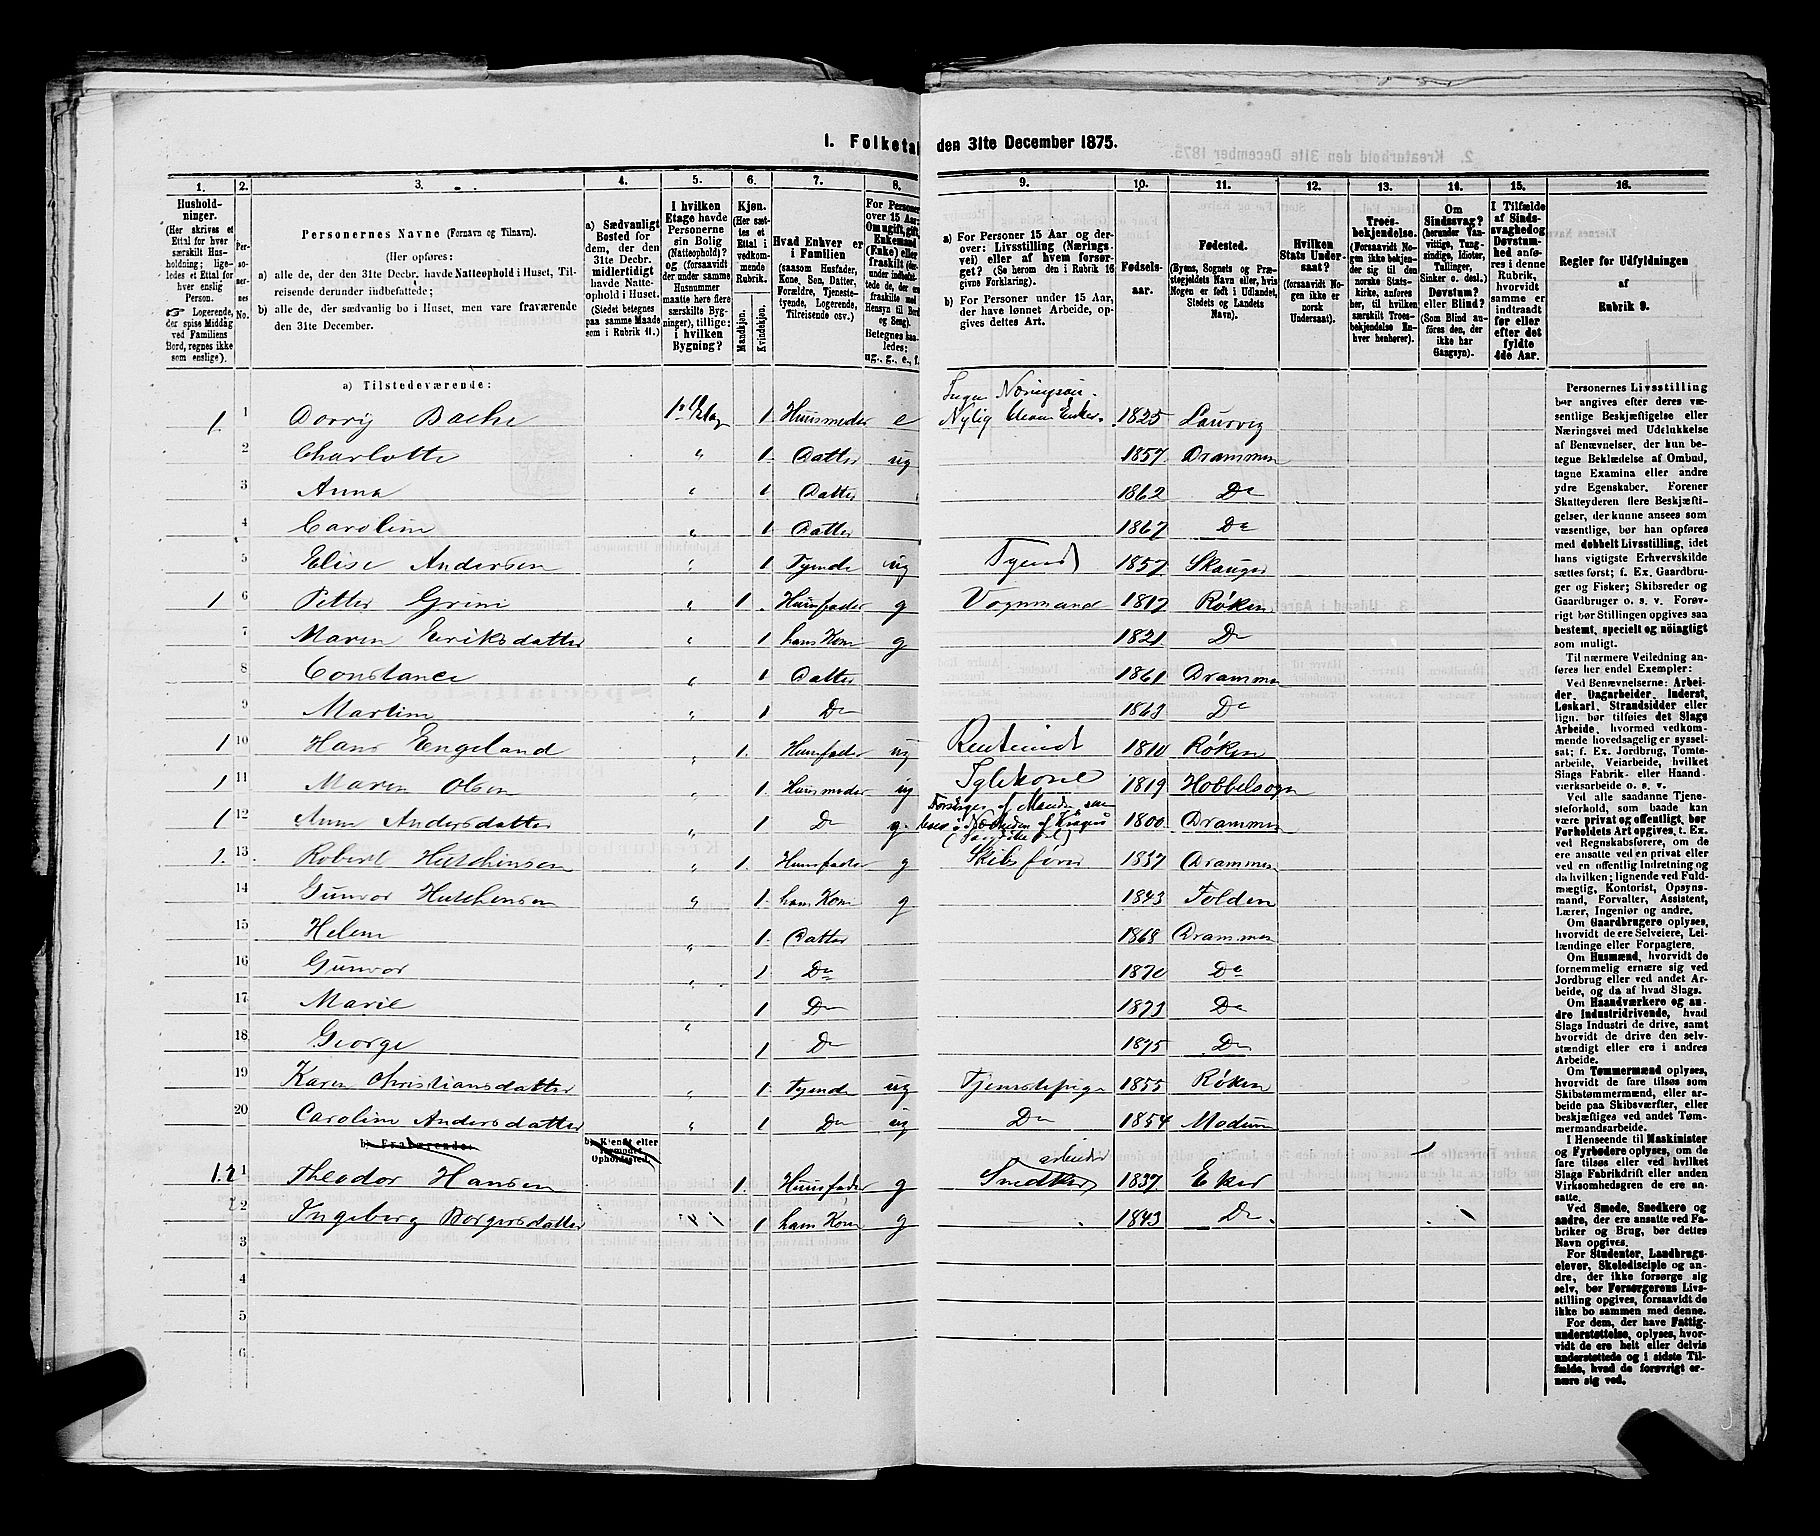 1. Folketal den 31te December 1875.
1. 2. 3. 4. 5. 6. 7. 8. 9. 10. 11. 12. 13. 14. 15. 16.
Hushold-
ninger.
(Her skrives et
Ettal for hver
særskilt Hus-
holdning; lige-
ledes et Ettal for
hver enslig
Person.
☞ Logerende,
der spise Middag
ved Familiens
Bord, regnes ikke
som enslige).
Per-
so-
ner-
nes
No.
Personernes Navne (Fornavn og Tilnavn).
(Her opføres:
a) alle de, der den 31te Decbr. havde Natteophold i Huset, Til-
reisende derunder indbefattede;
b) alle de, der sædvanlig bo i Huset, men vare fraværende
den 31te December.
a) Sædvanligt
Bosted for
dem, der den
31te Decbr.
midlertidigt
havde Natte-
ophold i Huset.
(Stedet betegnes
paa samme Maade
som i Rubrik 11.)
I hvilken
Etage havde
Personerne
sin Bolig
(Natteophold)?
og (forsaavidt
der under samme
Husnummer
maatte høre flere
særskilte Byg-
ninger), tillige:
i hvilken
Bygning?
Kjøn.
(Her sæt-
tes et
Ettal i
vedkom-
mende
Rubrik.
Mandkjøn.
Kvindekjøn.
Hvad Enhver er
i Familien
(saasom Husfader,
Kone, Søn, Datter,
Forældre, Tjeneste-
tyende, Logerende,
Tilreisende osv.)
For Personer
over 15 Aar:
Om ugift, gift,
Enkemand
(Enke) eller
fraskilt
Betegnes saa-
ledes:
ug., g., e., f.
a) For Personer 15 Aar og der-
over: Livsstilling (Nærings-
vei) eller af hvem forsør-
get? (Se herom den i Rubrik 16
givne Forklaring).
b) For Personer under 15 Aar,
der have lønnet Arbeide, op-
gives dettes Art.
Fødsels-
aar.
Fødested.
(Byens, Sognets og Præ-
stegjeldets Navn, eller, hvis
Nogen er født i Udlandet,
Stedets og Landets
Navn).
Hvilken
Stats Under-
saat?
(forsaavidt No-
gen ikke er
norsk
Undersaat).
Troes-
bekjendelse.
(Forsaavidt No-
gen ikke bekjen-
der sig til den
norske Stats-
kirke, anføres
her, til hvilken
særskilt Troes-
bekjendelse En-
hver henhører).
Om
Sindssvag?
(herunder Van-
vittige, Tung-
sindige, Idioter,
Tullinger,
Sinker o. desl.)
Døvstum?
eller Blind?
(Som Blind an-
føres den, der
ikke har
Gangsyn).
I Tilfælde
af Sinds-
svaghed og
Døvstum-
hed an-
føres i denne
Rubrik,
hvorvidt
samme er
indtraadt
før eller
efter det
fyldte
4de Aar.
Regler for Udfyldningen
af
Rubrik 9.
a) Tilstedeværende:
1. 1 Dorry Bache 1ste Etag 1. Huusmoder e Nylig bleven Enke. 1825 Laurvig
2 Charlotte " 1. Datter ug 1857. Drammen
3 Anna " 1 Datter 1862 Do
4 Caroline " 1 Datter 1867 Do
5 Elise Andersen " 1 Tyende ug Tyende 1857 Skauger
1 6 Petter Grini " 1 Huusfader g Vognmand 1817 Røken
7 Maren Eriksdatter " 1 hans Kone g 1821 Do
8 Constance " 1 Datter 1861 Drammen
9 Martine 1 Do 1863 Do
1 10 Hans Engeland " 1. Huusfader ug Rentenist 1810 Røken
1 11 Maren Olsen " 1. Huusmoder ug 1819 Hobbelsogn
1 12 Anne Andersdatter " 1 Do g. Forsørges af Manden som 1800. Drammen
1. 13 Robert Hutchinsen " 1. Huusfader g Skibsfører 1837 Drammen
14 Gunvor Hutchensen " 1. hans Kone g 1843 Folden
15 Helene " 1. Datter 1868 Drammen
16 Gunvor " 1 Do 1870 Do
17 Marie " 1 Do 1873 Do
18 George " 1 Do 1875 Do
19 Karen Christiansdatter " 1. Tyende ug Tjenestepige 1855 Røken
20 Caroline Andersdatter " 1 Do ug Do 1854 Modum
b) Fraværende: b) Kjendt eller
formodet
Opholdssted.
1 Theodor Hansen 1. Huusfader g Snedker arbeider 1837 Eker
2 Ingeborg Borgersdatter " 1 hans Kone g 1843 Do
3
4
5
6
Personernes Livsstilling
bør angives efter deres væ-
sentlige Beskjæftigelse eller
Næringsvei med Udelukkelse
af Benævnelser, der kun be-
tegne Beklædelse af Ombud,
tagne Examina eller andre
ydre Egenskaber. Forener
Skatteyderen flere Beskjæfti-
gelser, der kunne ansees som
væsentlige, bør han opføres
med dobbelt Livsstilling, idet
hans vigtigste Erhvervskilde
sættes først; f. Ex. Gaardbru-
ger og Fisker; Skibsreder og
Gaardbruger o. s. v. Forøv-
rigt bør Stillingen opgives saa
bestemt, specielt og nöiagtigt
som muligt.
Til nærmere Veiledning an-
føres her endel Exempler:
Ved Benævnelserne: Arbei-
der, Dagarbeider, Inderst,
Løskarl, Strandsidder eller
lign. bør tilføies det Slags
Arbeide, hvormed vedkom-
mende hovedsagelig er syssel-
sat; f. Ex. Jordbrug, Tomte-
arbeide, Veiarbeide, hvilket
Slags Fabrik- eller Haand-
værksarbeide o. s. v.
Ved alle saadanne Tjene-
steforhold, som baade kan
være privat og offentlig, bør
Forholdets Art opgives, t. Ex.
ved Regnskabsførere, om de
ere ansatte ved en privat eller
ved en offentlig Indretning og
da hvilken; lignende ved Fuld-
mægtig, Kontorist, Opsyns-
mand, Forvalter, Assistent,
Lærer, Ingeniør og andre.
Om Gaardbrugere oplyses,
hvorvidt de ere Selveiere, Lei-
lændinge eller Forpagtere.
Om Husmænd, hvorvidt de
fornemmelig ernære sig ved
Jordbrug eller ved andet Ar-
beide, og da af hvad Slags.
Om Haandværkere og an-
dre Industridrivende, hvad
Slags Industri de drive, samt
hvorvidt de drive den selv-
stændigt eller ere i andres
Arbeide.
Om Tømmermænd oplyses,
hvorvidt de fare tilsøs som
Skibstømmermænd, eller ar-
beide paa Skibsværfter, eller
beskjæftiges ved andet Tøm-
mermandsarbeide.
I Henseende til Maskinister
og Fyrbødere oplyses, om de
fare tilsøs eller ved hvilket
Slags Fabrikdrift eller anden
Virksomhedsgren de ere an-
satte.
Ved Smede, Snedkere og
andre, der ere ansatte ved Fa-
briker og Brug, bør dettes
Navn opgives.
For Studenter, Landbrugs-
elever, Skoledisciple og an-
dre, der ikke forsørge sig
selv, bør Forsørgerens Livs-
stilling opgives, forsaavidt de
ikke bo sammen med denne.
For dem, der have Fattig-
understøttelse, oplyses, hvor-
vidt de ere helt eller delvis
understøttede og i sidste Til-
fælde, hvad de forøvrigt er-
nære sig ved.